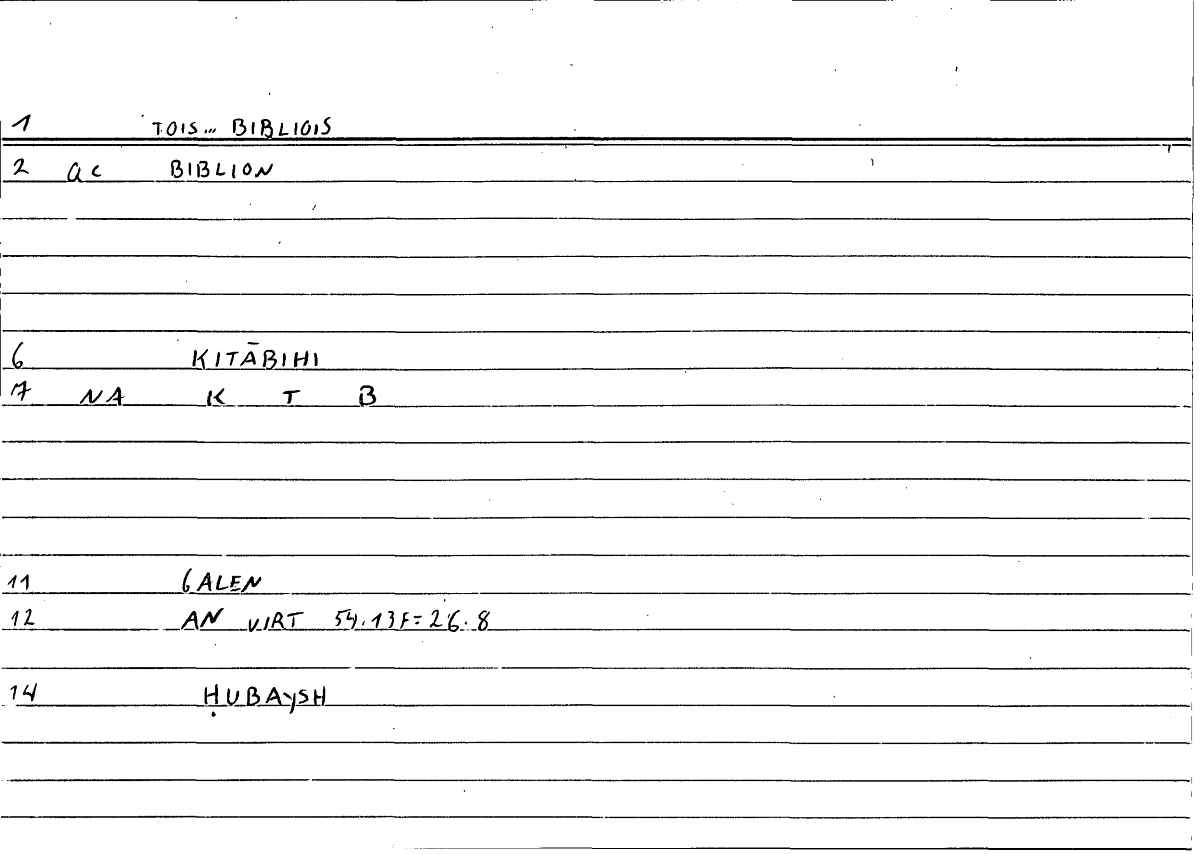 1 TOIS... BIBLIOIS
2 ac BIBLION
6 KITĀBIHI
7 NA K T B
11 GALEN
12 AN VIRT 54.13F=26.8
14 ḤUBAYSH